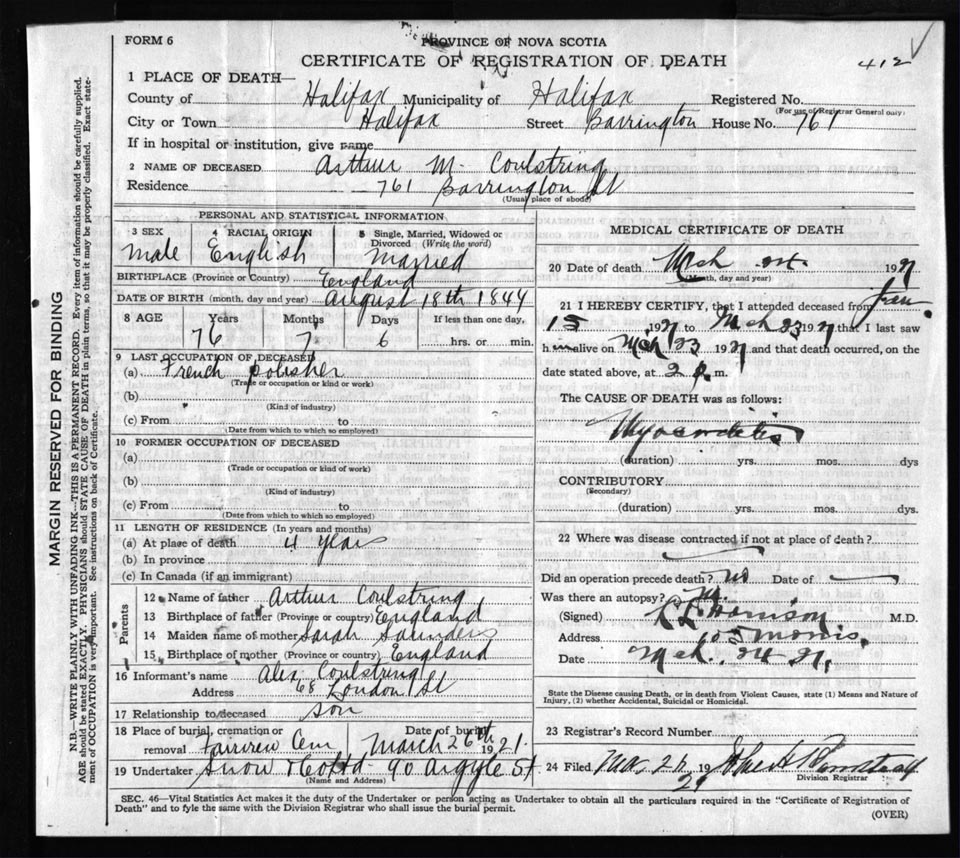 FORM 6
PROVINCE OF NOVA SCOTIA
CERTIFICATE OF REGISTRATION OF DEATH
412
1 PLACE OF DEATH—
County of Halifax Municipality of Halifax Registered No.
(For use of Registrar General only)
City or Town Halifax Street Barrington House No. 761
If in hospital or institution, give name
2 NAME OF DECEASED Arthur M. Coulstring
Residence 761 Barrington St
(Usual place of abode)
PERSONAL AND STATISTICAL INFORMATION
3 SEX 4 RACIAL ORIGIN 5 Single, Married, Widowed or Divorced (Write the word)
male English Married
BIRTHPLACE (Province or Country) England
DATE OF BIRTH (month, day and year) August 18th 1844
8 AGE Years Months Days If less than one day,
76 7 6 hrs. or min.
9 LAST OCCUPATION OF DECEASED
(a) French polisher
(Trade or occupation or kind of work)
(b)
(Kind of industry)
(c) From to
(Date from which to which so employed)
10 FORMER OCCUPATION OF DECEASED
(a)
(Trade or occupation or kind of work)
(b)
(Kind of industry)
(c) From to
(Date from which to which so employed)
11 LENGTH OF RESIDENCE (In years and months)
(a) At place of death 4 years
(b) In province
(c) In Canada (if an immigrant)
Parents
12 Name of father Arthur Coulstring
13 Birthplace of father (Province or country) England
14 Maiden name of mother Sarah Saunders
15 Birthplace of mother (Province or country) England
16 Informant's name Alex Coulstring
Address 68 London St
17 Relationship to deceased son
18 Place of burial, cremation or Date of burial
removal Fairview Cem March 26th 1921.
19 Undertaker Snow & Co Ltd 90 Argyle St.
(Name and Address)
MEDICAL CERTIFICATE OF DEATH
20 Date of death Mch 24. 1921
(Month, day and year)
21 I HEREBY CERTIFY, that I attended deceased from Jan
15 1921 to Mch 23 1921 that I last saw
h im alive on Mch 23 1921 and that death occurred, on the
date stated above, at 2 p. m.
The CAUSE OF DEATH was as follows:
Myocarditis
(duration) yrs. mos. dys
CONTRIBUTORY
(Secondary)
(duration) yrs. mos. dys.
22 Where was disease contracted if not at place of death?
Did an operation precede death? no Date of
Was there an autopsy? no.
(Signed) M.D.
Address Morris
Date Mch. 24 21.
State the Disease causing Death, or in death from Violent Causes, state (1) Means and Nature of
Injury, (2) whether Accidental, Suicidal or Homicidal.
23 Registrar's Record Number
24 Filed 19 21
Division Registrar
SEC. 46—Vital Statistics Act makes it the duty of the Undertaker or person acting as Undertaker to obtain all the particulars required in the "Certificate of Registration of
Death" and to fyle the same with the Division Registrar who shall issue the burial permit.
(OVER)
MARGIN RESERVED FOR BINDING
N.B.—WRITE PLAINLY WITH UNFADING INK—THIS IS A PERMANENT RECORD. Every item of information should be carefully supplied.
AGE should be stated EXACTLY. PHYSICIANS should STATE CAUSE OF DEATH in plain terms, so that it may be properly classified. Exact state-
ment of OCCUPATION is very important. See instructions on back of Certificate.